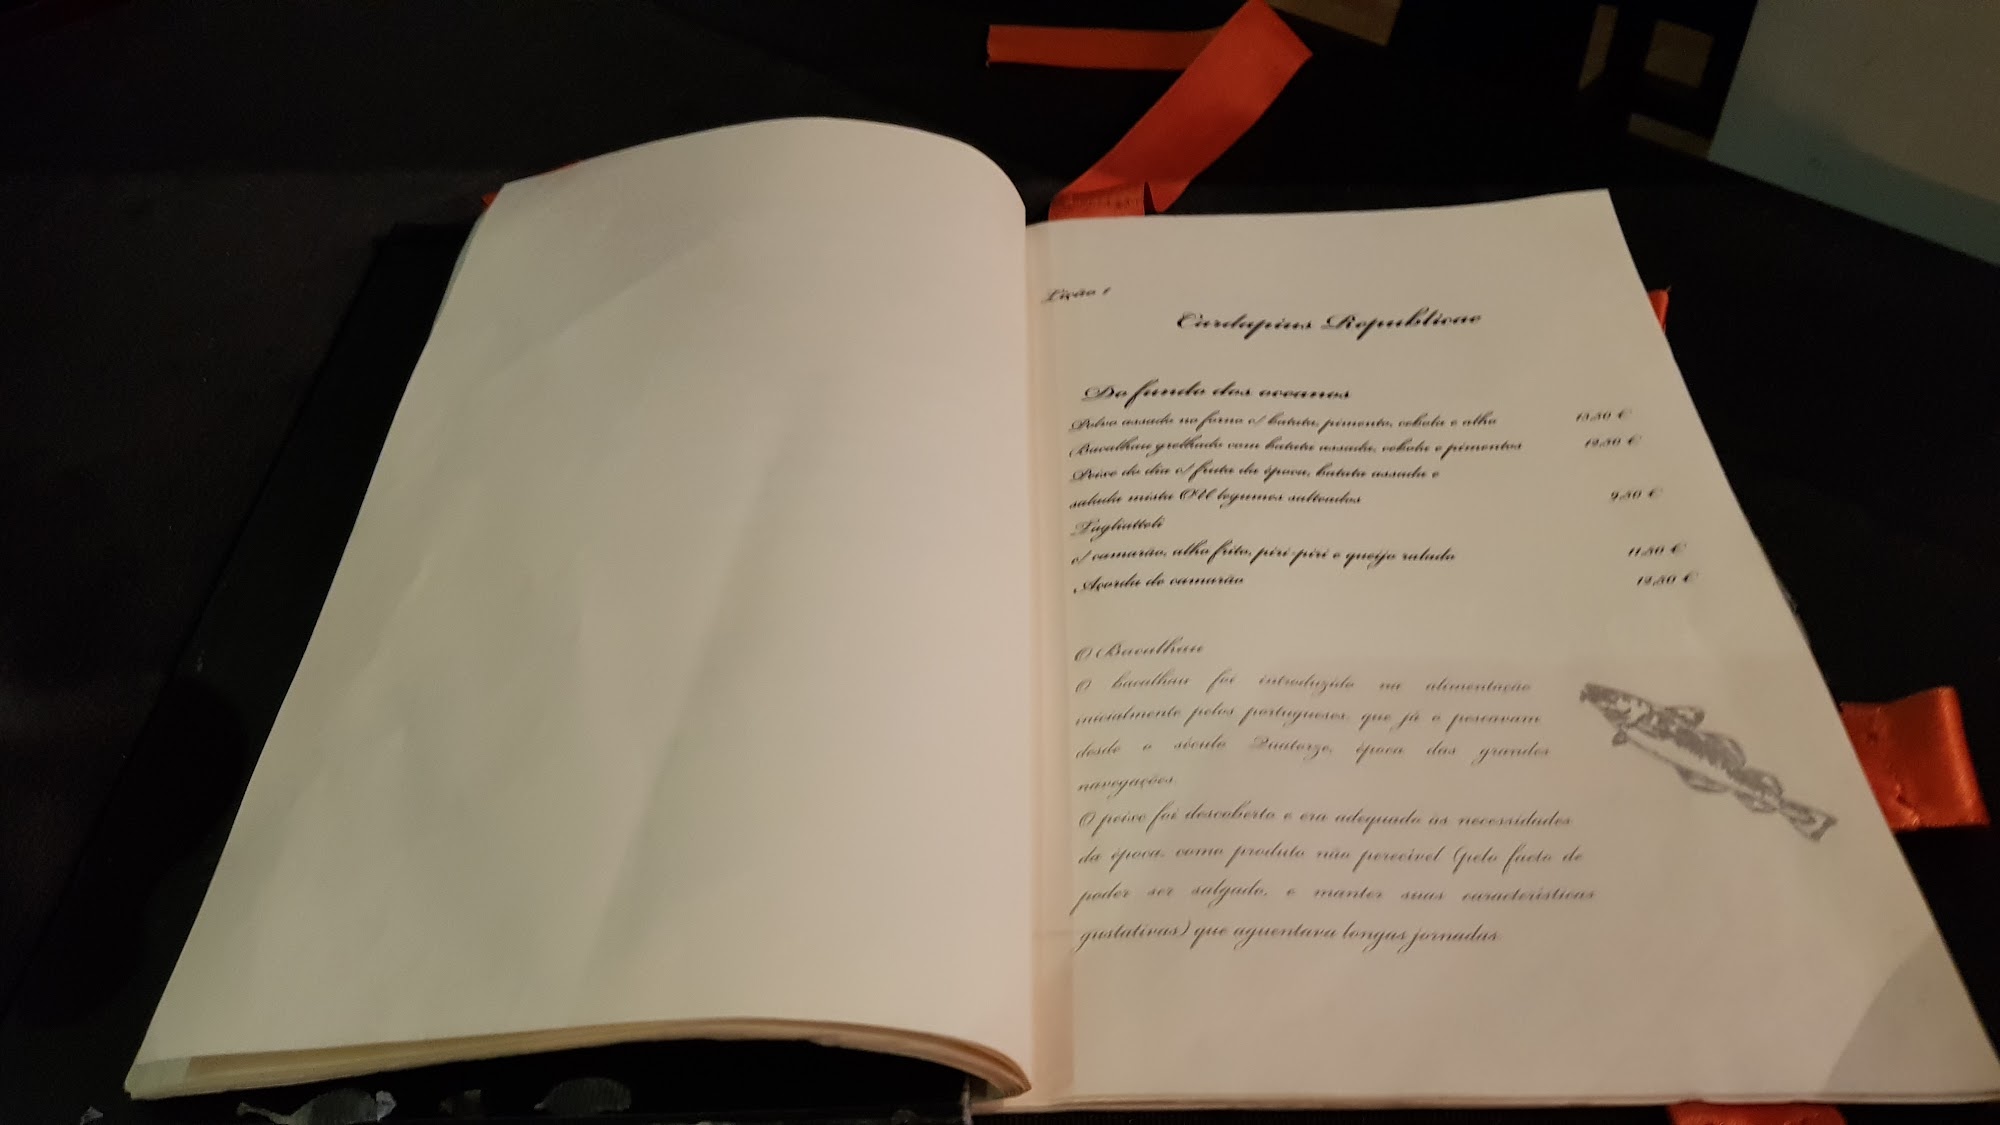 Lição 1
Cardapius Republicae
Do fundo dos oceanos
Polvo assado no forno c/ batata, pimento, cebola e alho 13,50 €
Bacalhau grelhado com batata assada, cebola e pimentos 12,50 €
Peixe do dia c/ fruta da época, batata assada e
salada mista OU legumes salteados 9,50 €
Tagliatteli
c/ camarão, alho frito, piri-piri e queijo ralado 11,50 €
Açorda de camarão 12,50 €
O Bacalhau
O bacalhau foi introduzido na alimentação
inicialmente pelos portugueses, que já o pescavam
desde o século Quatorze, época das grandes
navegações.
O peixe foi descoberto e era adequado às necessidades
da época, como produto não perecível (pelo facto de
poder ser salgado, e manter suas características
gustativas) que aguentava longas jornadas